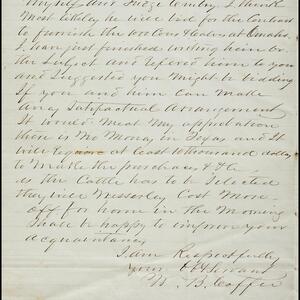 Myself and Judge
Most likely he will bid for the Contract
to furnish the 400 Cows & at Omaha
I have just finished writing him on
the Subject and Refered him to you
and Suggested you Might be bidding
If you and him Can Make
any Satisfactual Arrangement
It would Meat My approbation
there is No Money in Texas and It
will Require at Least 10 thousand dollars
to Make the purchases
as the Cattle has to be Selected
they will Cost More
off for home in the Morning
I will be happy to improve your
acquaintance
I am Respectfully
your